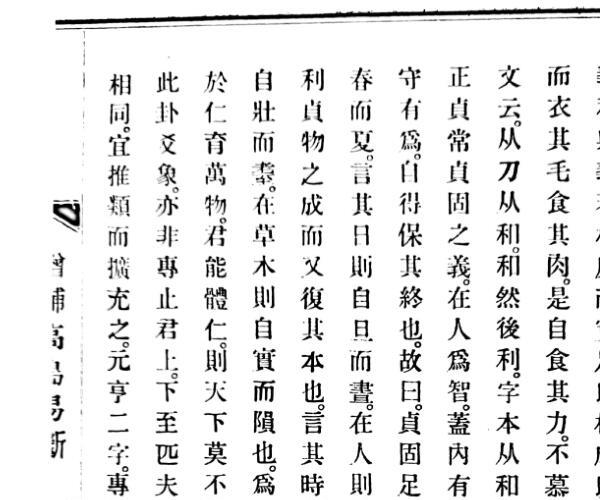 而衣其毛食其肉。是自食其力。不慕
文云。从刀从和。和然後利。字本从和
正貞常貞固之義。在人為智。蓋內有
守有為。自得保其終也。故曰。貞固足
春而夏。言其日則自旦而晝。在人則
利貞物之成而又復其本也。言其時
自壯而耋。在草木則自實而隕也。為
於仁育萬物。君能體仁。則天下莫不
此卦爻象。亦非專止君上。下至匹夫
相同。宜推類而擴充之。元亨二字。專
增補高島易斷